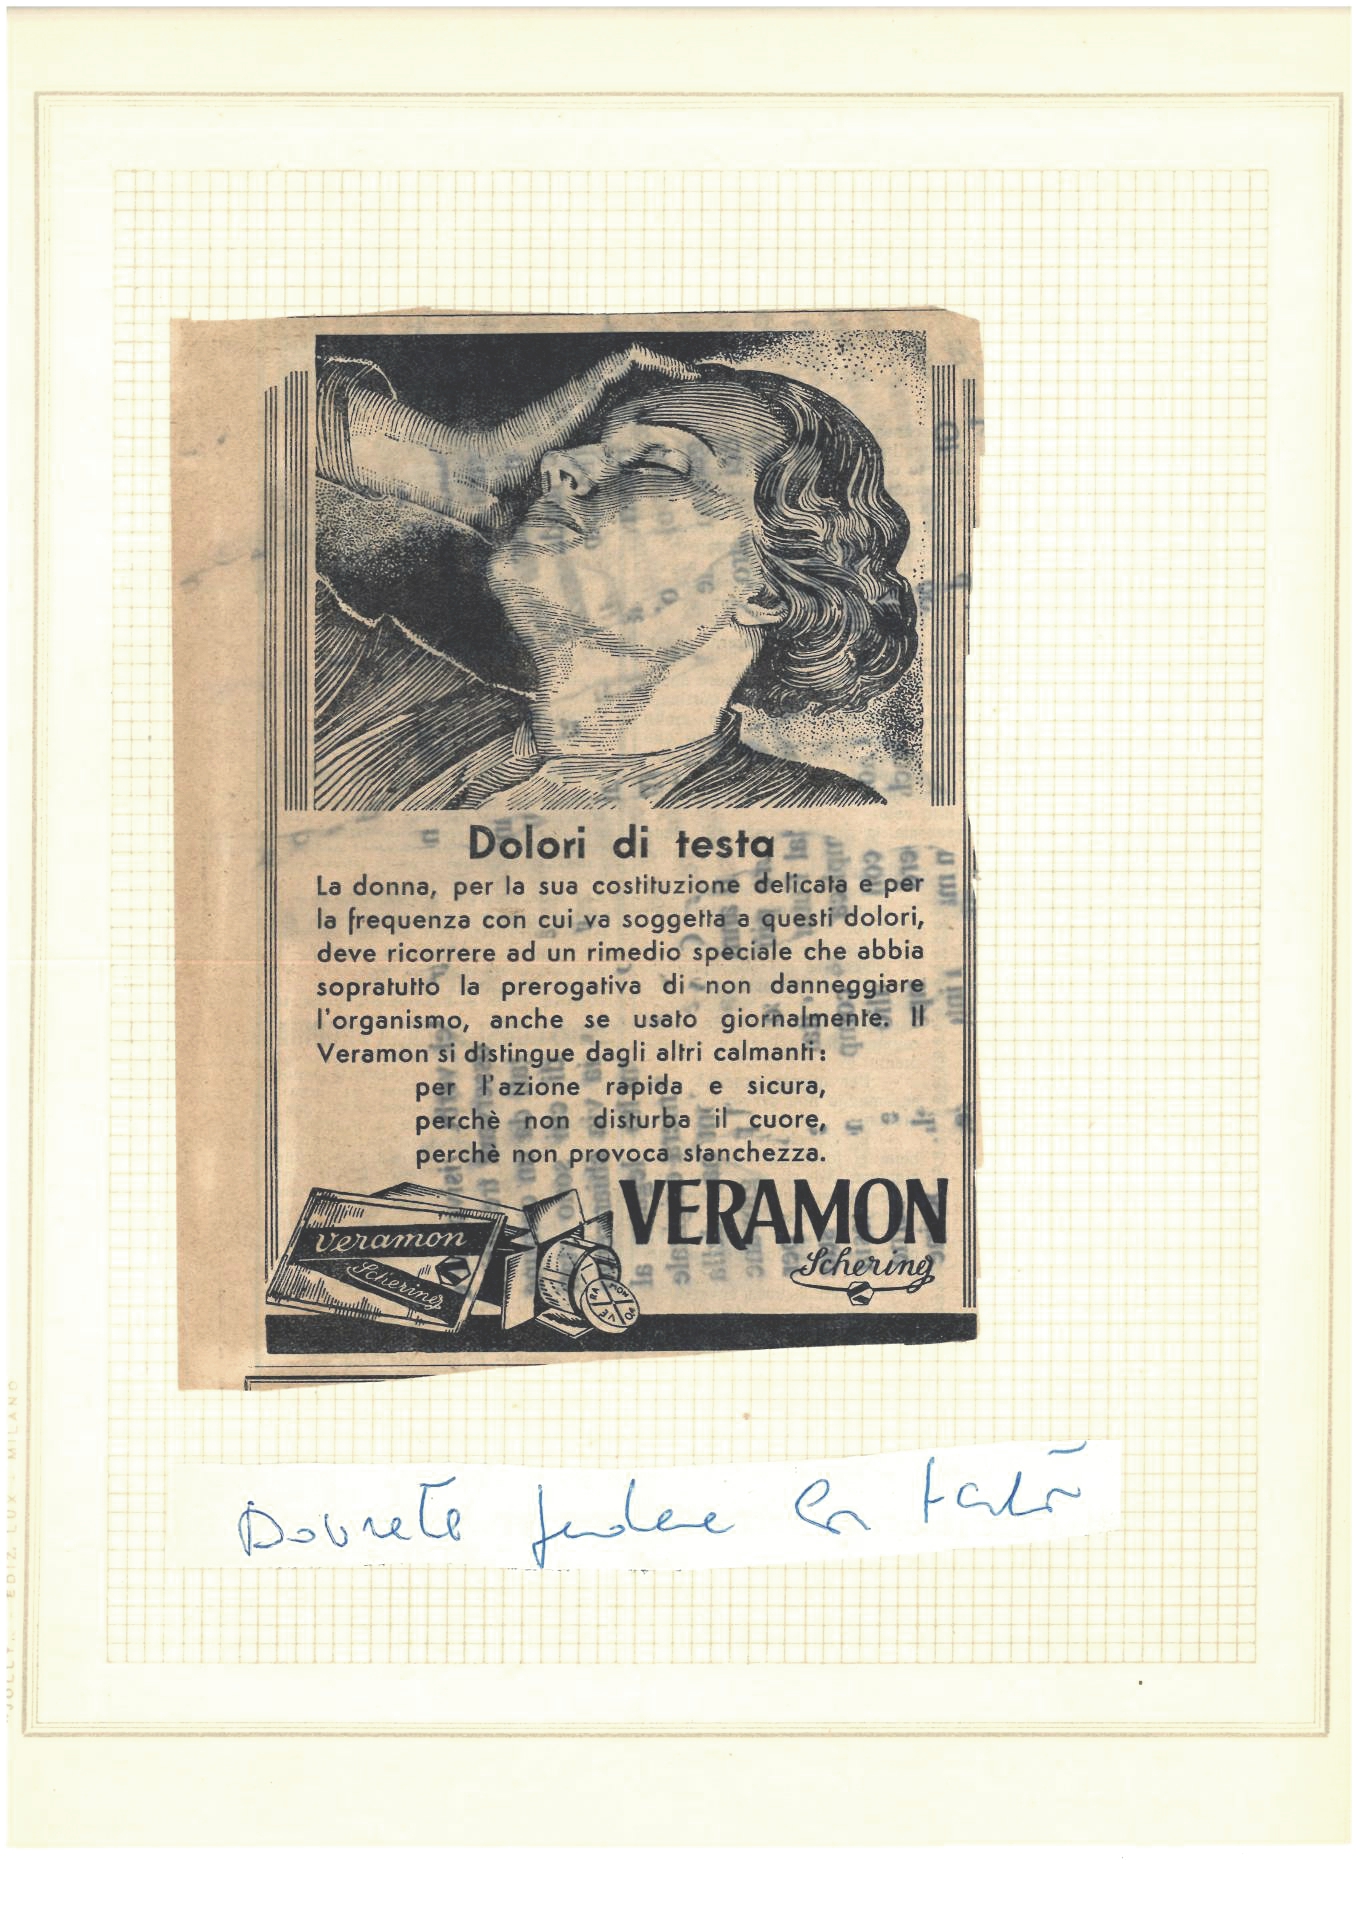 Dolori di testa
La donna, per la sua costituzione delicata e per
la frequenza con cui va soggetta a questi dolori,
deve ricorrere ad un rimedio speciale che abbia
sopratutto la prerogativa di non danneggiare
l'organismo, anche se usato giornalmente. Il
Veramon si distingue dagli altri calmanti:
per l'azione rapida e sicura,
perchè non disturba il cuore,
perchè non provoca stanchezza.
VERAMON
Schering
veramon
Schering
VERAMON
Dovrete
EDIZ. LUX - MILANO